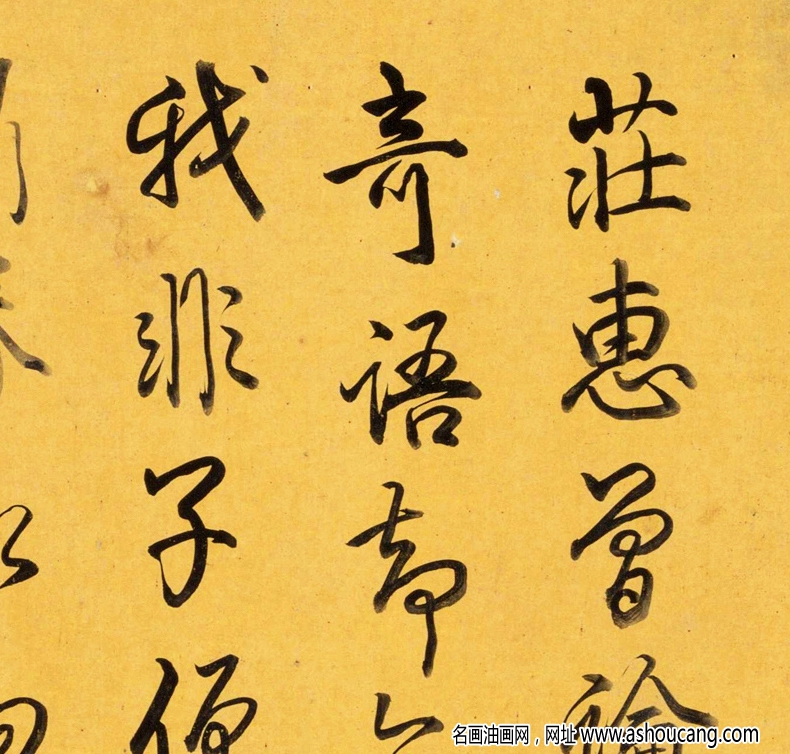 莊惠曾
奇語却
我非子便
名画油画网，网址 www.ashoucang.com